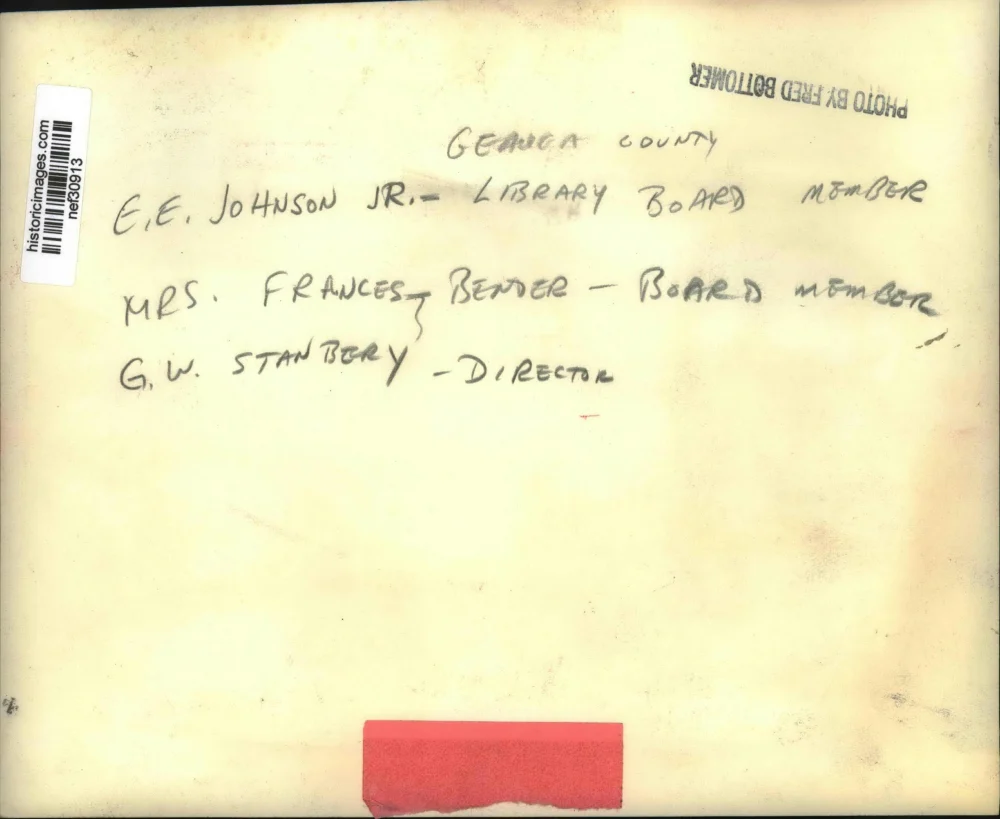 PHOTO BY FRED BOTTOMER
historicimages.com
nef30913
GEAUGA COUNTY
E.E. JOHNSON JR. - LIBRARY BOARD MEMBER
MRS. FRANCES BENDER - BOARD MEMBER
G.W. STANBERY - DIRECTOR